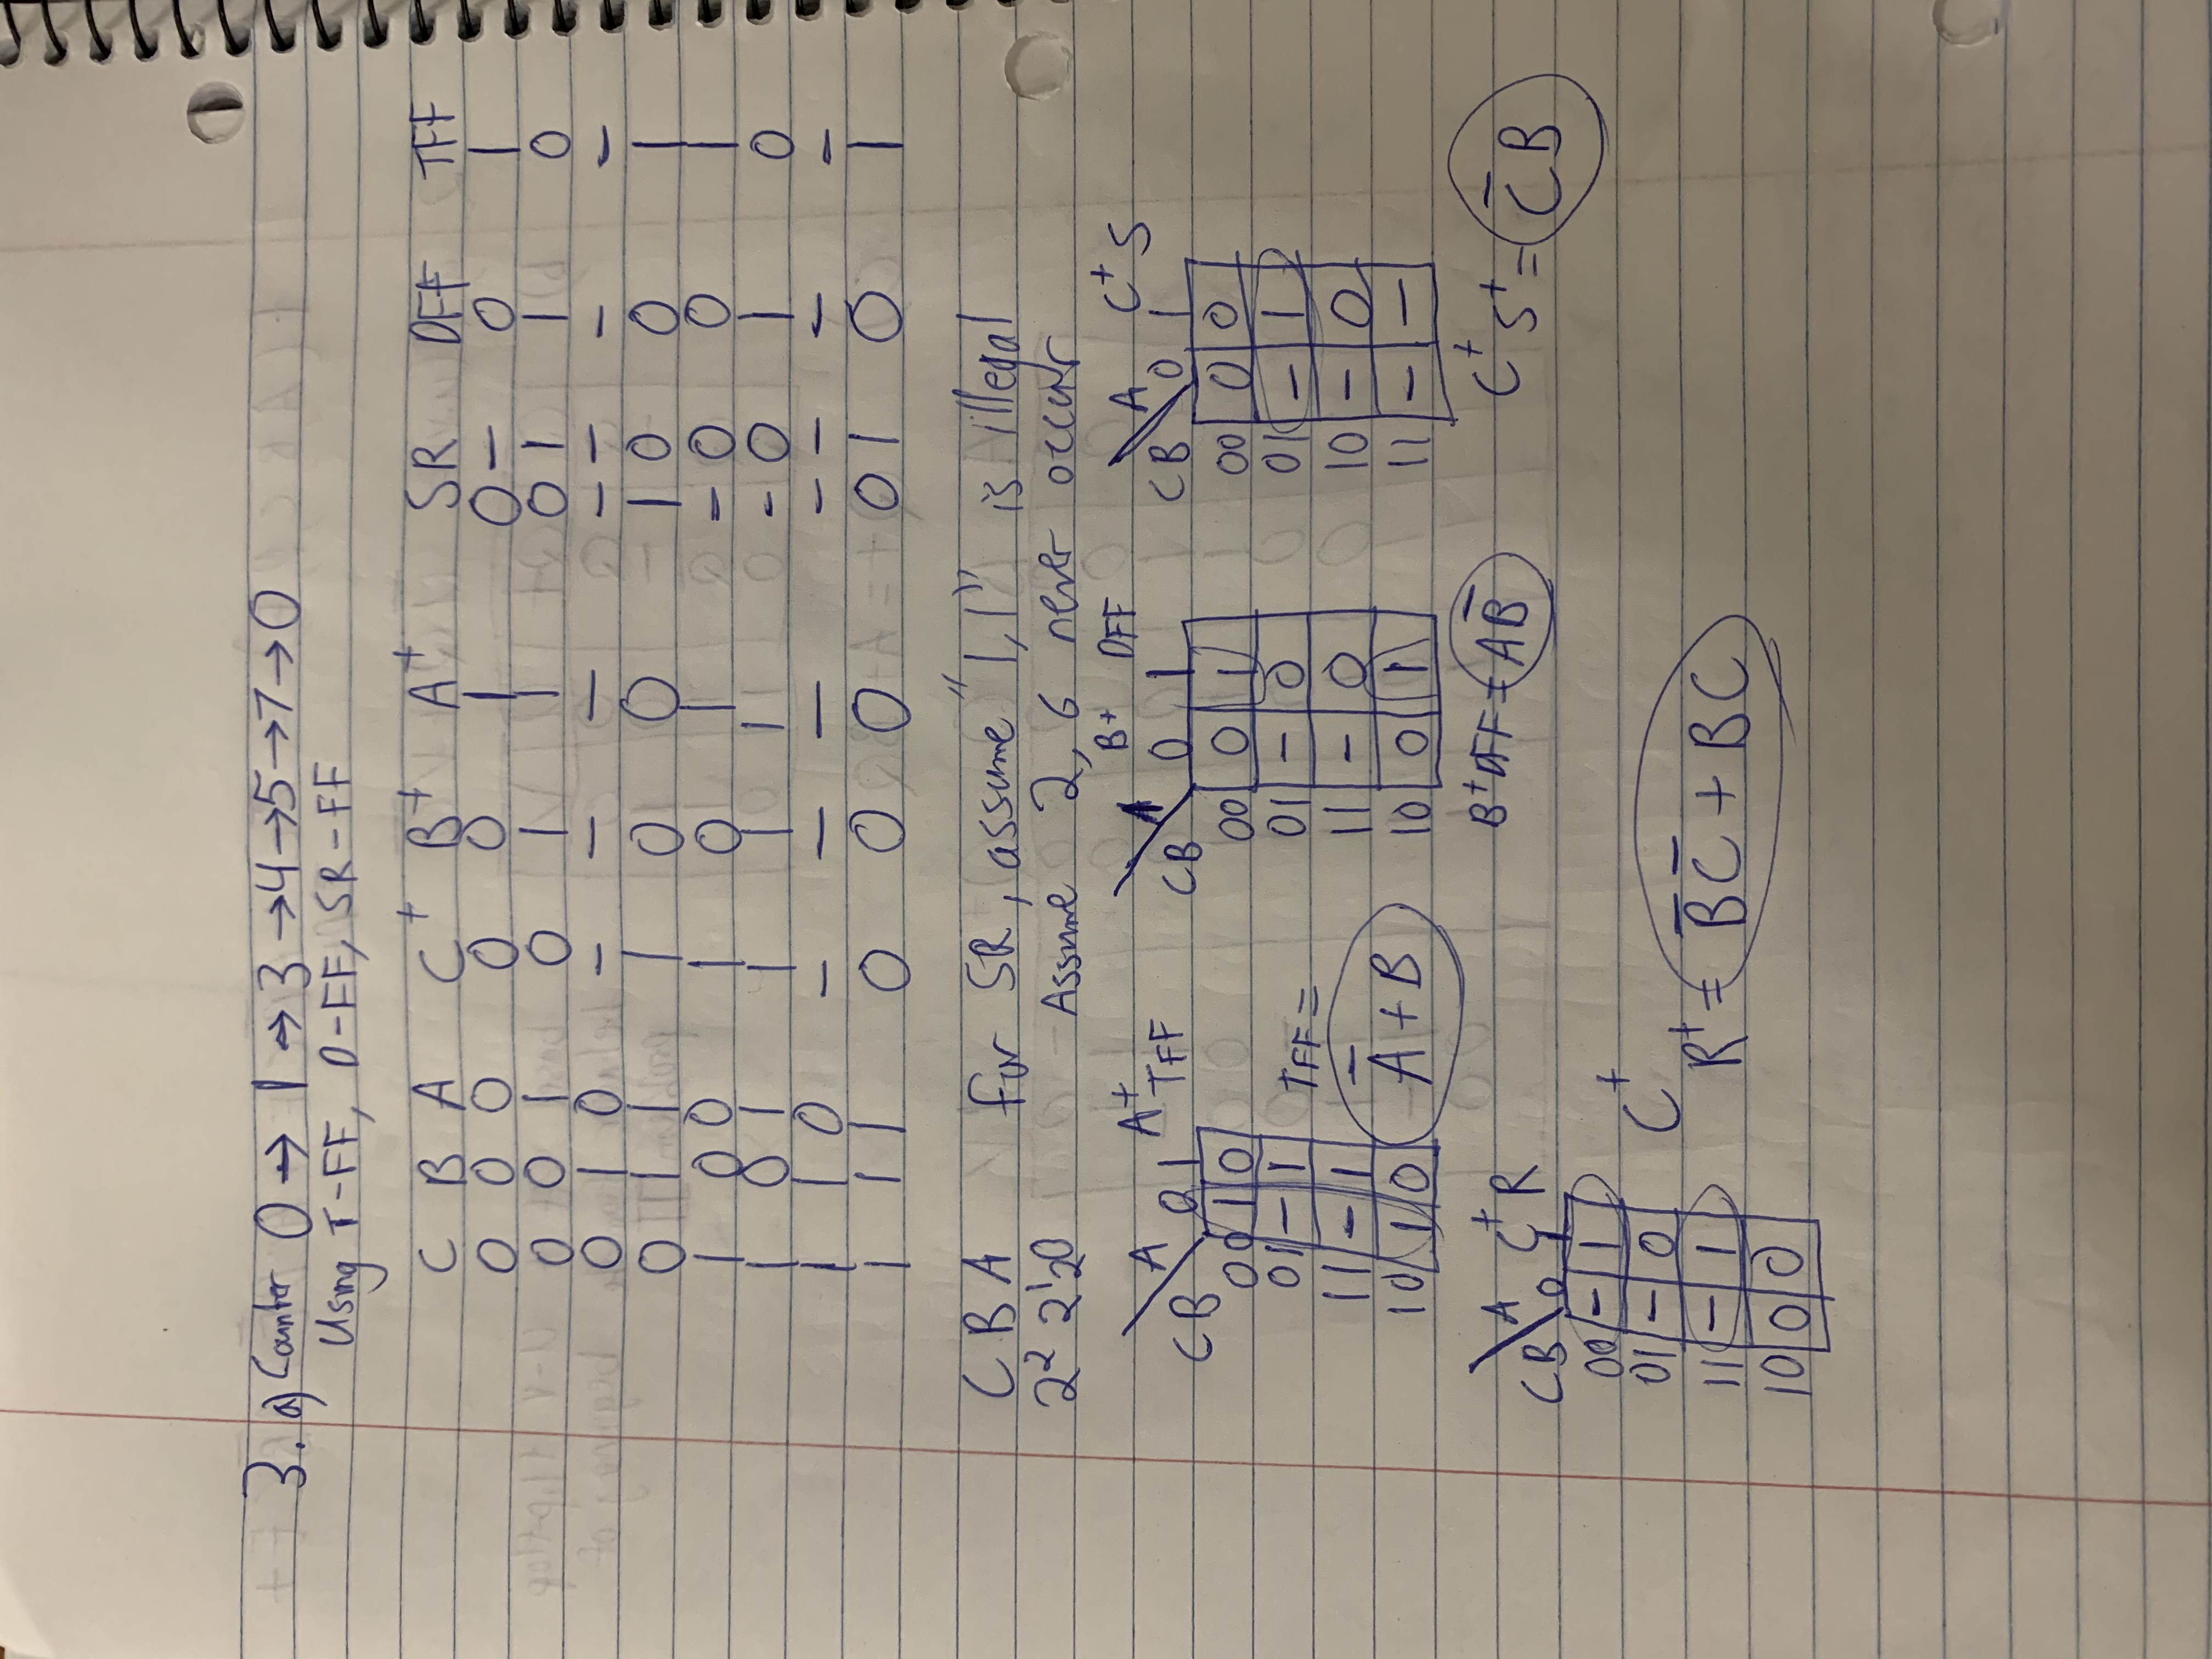 3. a) Counter 0 → 1 → 3 → 4 → 5 → 7 → 0
Using T-FF, D-FF, SR-FF
C B A C⁺ B⁺ A⁺ SR DFF TFF
0 0 0 0 0 1 0 – 0 1
0 0 1 0 1 1 0 1 1 0
0 1 0 – – – – – – –
0 1 1 1 0 0 1 0 0 1
1 0 0 1 0 1 – 0 0 1
1 0 1 1 1 1 – 0 1 0
1 1 0 – – – – – – –
1 1 1 0 0 0 0 1 0 1
C B A for SR, assume "1,1" is illegal
2² 2¹ 2⁰ Assume 2, 6 never occur
A A⁺ TFF
CB 0 1
00 1 0
01 – 1
11 – 1
10 1 0
TFF =
A̅ + B
A B⁺ DFF
CB 0 1
00 0 1
01 – 0
11 – 0
10 0 1
B⁺DFF = AB̅
A C⁺ S
CB 0 1
00 0 0
01 – 1
10 – 0
11 – –
C⁺ S⁺ = C̅B
A C⁺ R
CB 0 1
00 – 1
01 – 0
11 – 1
10 0 0
C⁺
R⁺ = B̅C̅ + BC